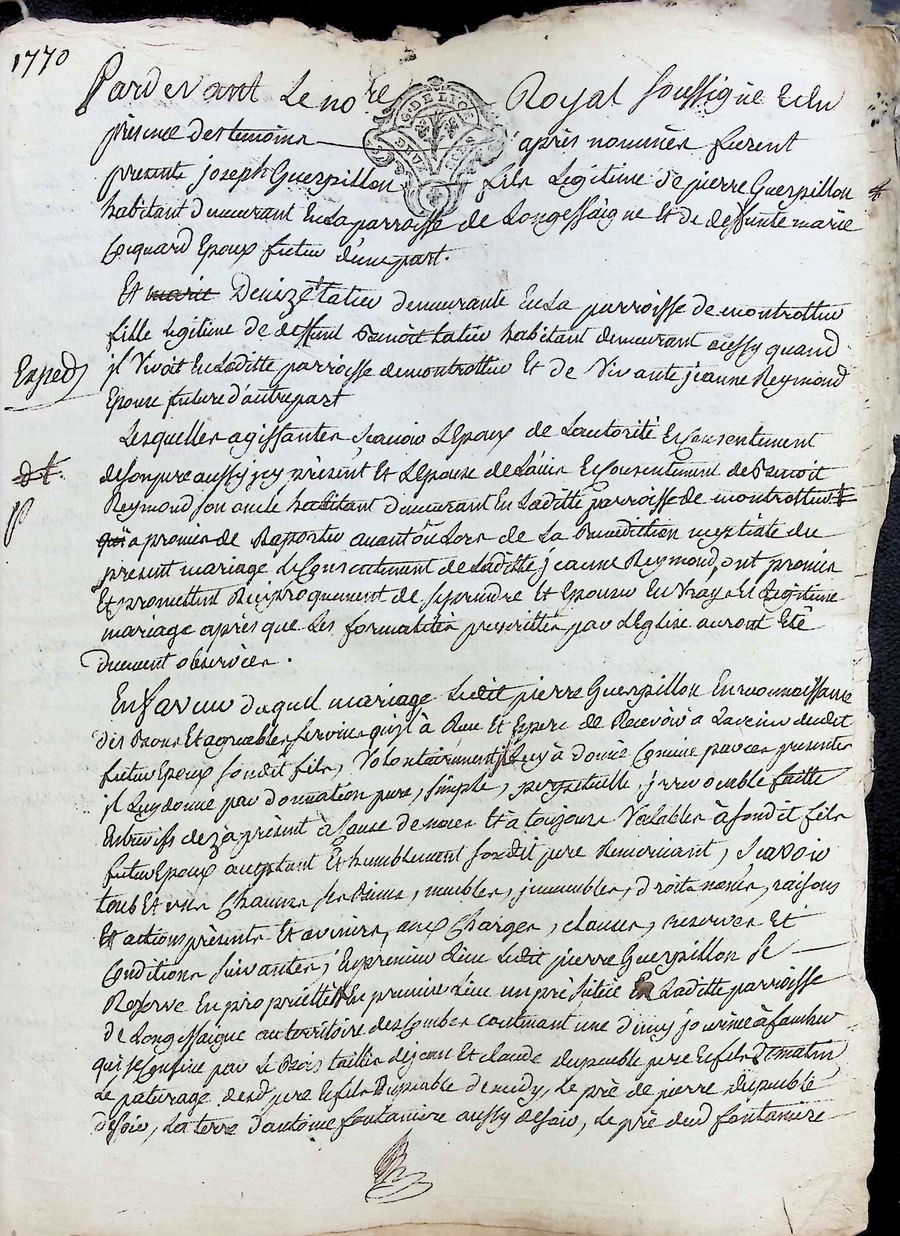 1770
Pardevant Le no.re Royal soussigné Et En
présence des temoins après nommés furent
presents joseph Guerpillon fils Legitime de pierre Guerpillon
habitant demeurant En La parroisse de Longessaigne Et de deffunte marie
Coquard Epoux futur d'une part.
Et marie Denize tatiu demeurante En La parroisse de montrottier
fille Legitime de deffunt Benoit tatiu habitant demeurant aussy quand
jl Vivoit En Laditte parroisse de montrottier Et de Vivante jeanne Reymond
Exped
Epouse future d'autre part
Lesquelles agissantes scavoir L'Epoux de L'autorité Et Consentement
de son pere aussy jcy présent Et L'Epouse de L'avis Et Consentement de Benoit
Reymond son oncle habitant demeurant En Laditte parroisse de montrottier
qui a promis de Raporter avant ou Lors de La Benediction nuptiale du
present mariage Le Consentement de Laditte jeanne Reymond, ont promis
Et promettent Reciproquement de se prendre Et Epouser En Vray Et Legitime
mariage après que Les formalités prescrittes par L'Eglise auront Eté
Duement observées.
En faveur duquel mariage Ledit pierre Guerpillon En reconnoissance
des Bons Et agreables services qu'il à Reçu Et Espere de Recevoir à L'avenir dudit
futur Epoux son dit fils, Volontairement Luy à donné Comme par ces presentes
jl Luy donne par donnation pure, simple, perpetuelle, jrrevocable faitte
Entrevifs dez à présent à Cause de noces Et a toujours Valable à son dit fils
futur Epoux acceptant Et humblement son dit pere Remerciant, scavoir
tous Et uns Chacuns ses Biens, meubles, jmmeubles, droits noms, raisons
Et actions présents Et avenirs, aux Charges, clauses, reserves Et
Conditions suivantes, En premier Lieu Ledit pierre Guerpillon se
Reserve En propriettés En premier Lieu un pré scitué En Laditte parroisse
de Longessaigne au territoire des Combes contenant une demy journée à faucher
qui se Confine par Le Bois taillis de jean Et claude Dupeuble pere Et fils de matin
Le paturage desd. pere Et fils Dupeuble de midy, Le pré de pierre dupeuble
de soir, La terre d'antoine fontaniere aussy de soir, Le pré dud. fontaniere